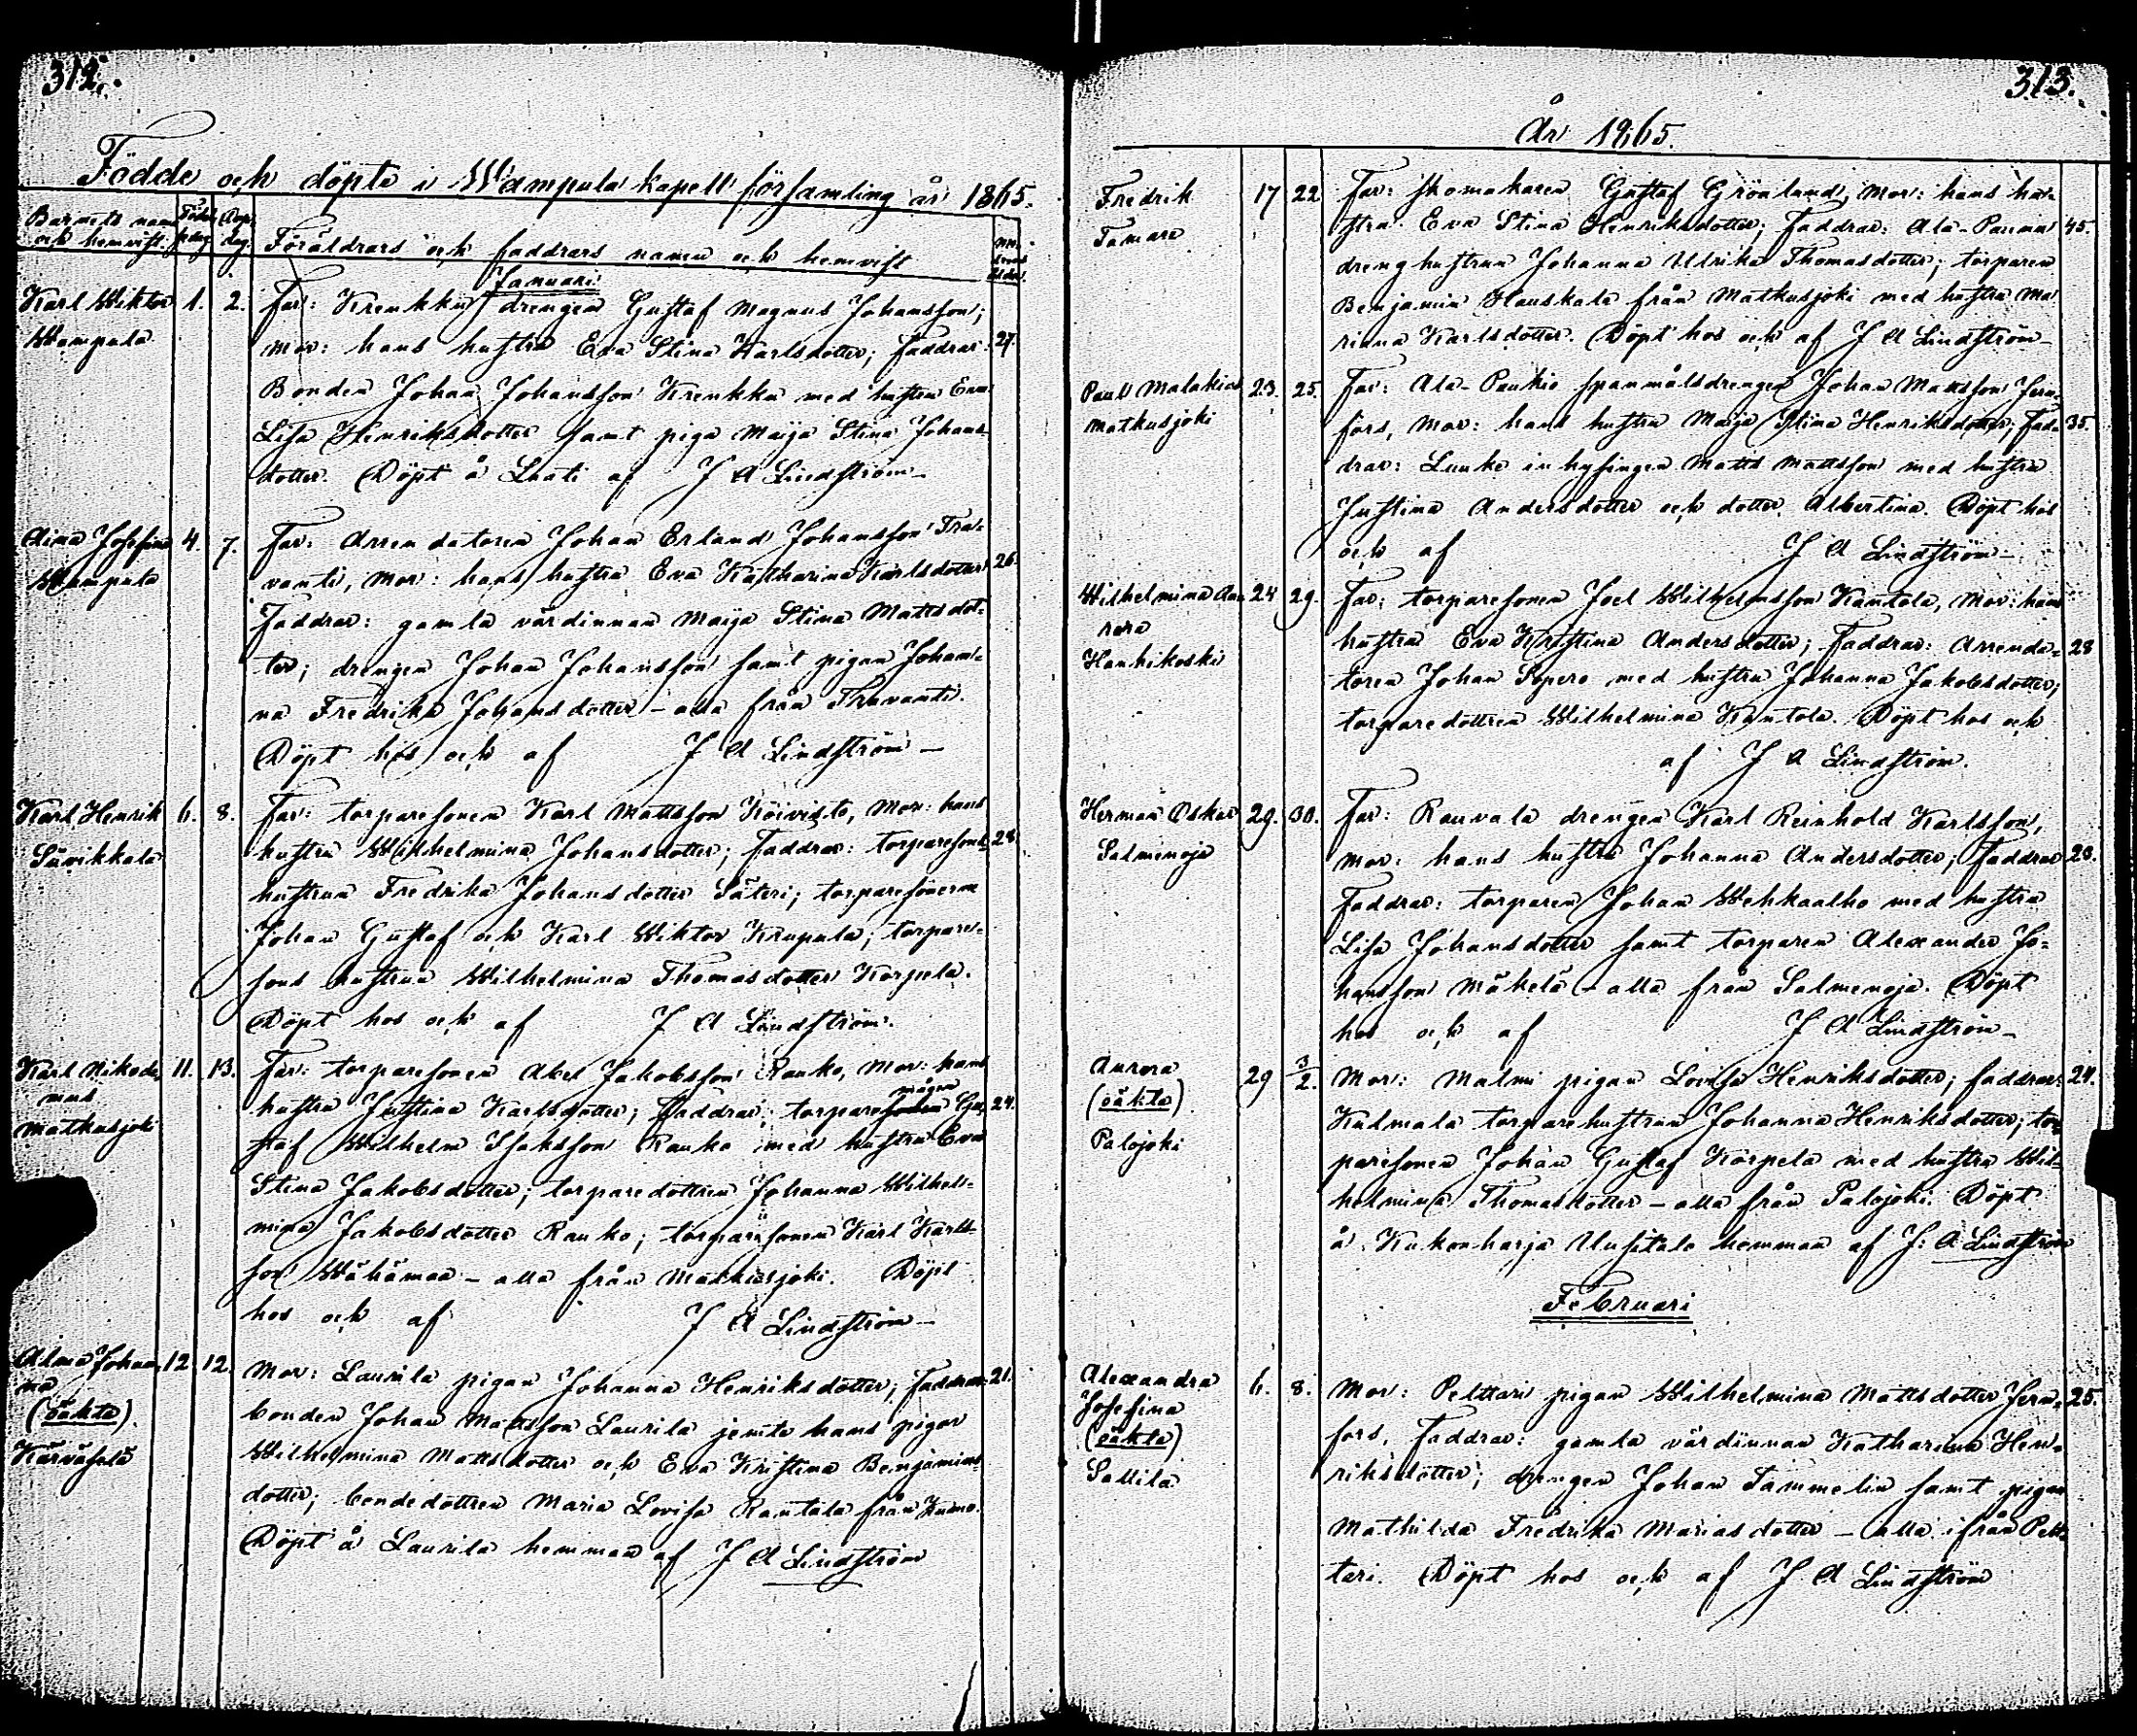 312.
Födde och döpte i Wampula kapell församling år 1865.
Barnets namn och hemvist.
Födelsedag
Dopdag
Föräldrars och faddrars namn och hemvist
Modrens ålder
Januari
Karl Wiktor
Wampula
1. 2.
Far: Krenkku drengen Gustaf Magnus Johansson;
mor: hans hustru Eva Stina Karlsdotter; Faddrar: 27.
Bonden Johan Johansson Krenkku med hustru Eva
Lisa Henriksdotter samt piga Maija Stina Johans-
dotter. Döpt å Laati af J A Lindström
Aina Josefina
Wampula
4. 7.
Far: Arrendatoren Johan Erland Johansson Tra-
vanti, Mor: hans hustru Eva Katharina Karlsdotter 26.
Faddrar: gamla värdinnan Maija Stina Mattsdot-
ter; drengen Johan Johansson samt pigan Johan-
na Fredrika Johansdotter – alla från Thravanti.
Döpt hos och af J A Lindström
Karl Henrik
Sävikkala
6. 8.
Far: torparesonen Karl Mattsson Koivisto, Mor: hans
hustru Wilhelmina Johansdotter; Faddrar: torparesons 28.
hustrun Fredrika Johansdotter Säteri; torparesönerne
Johan Gustaf och Karl Wiktor Krupula; torpare-
sons hustrun Wilhelmina Thomasdotter Korpela.
Döpt hos och af J A Lindström.
Karl Nikode-
mus
Matkusjoki
11. 13.
Far: torparesonen Abel Jakobsson Rauko, Mor: hans
hustru Justina Karlsdotter; Faddrar: torparemågen Gu- 24.
staf Wilhelm Isaksson Rauko med hustru Eva
Stina Jakobsdotter; torparedottren Johanna Wilhel-
mina Jakobsdotter Rauko; torparesonen Karl Karls-
son Wähämaa – alla från Matkusjoki. Döpt
hos och af J A Lindström
Alma Johan-
na
(oäkta).
Kärväselä
12 12.
Mor: Laurila pigan Johanna Henriksdotter; Faddrar: 21.
bonden Johan Mattsson Laurila jemte hans pigor
Wilhelmina Mattsdotter och Eva Kristina Benjamins-
dotter; bondedottren Maria Lovisa Rantala från Kumo.
Döpt å Laurila hemman af J A Lindström
313.
År 1865.
Fredrik
Tamare
17 22
Far: skomakaren Gustaf Grönlund, Mor: hans hu-
stru Eva Stina Henriksdotter; Faddrar: Ala-Paunu 45.
drenghustrun Johanna Ulrika Thomasdotter; torparen
Benjamin Hauskala från Matkusjoki med hustru Ma
riana Karlsdotter. Döpt hos och af J A Lindström
Paul Malakias
Matkusjoki
23. 25.
Far: Ala-Paukio spanmålsdrengen Johan Mattsson Jern-
fors, Mor: hans hustru Maija Stina Henriksdotter; Fad- 35.
drar: Lunka inhysingen Matts Mattsson med hustru
Justina Andersdotter och dotter Albertina. Döpt hos
och af J A Lindström
Wilhelmina Au-
rora
Hanhikoski
24 29.
Far: torparesonen Joel Wilhelmsson Kantola, Mor: hans
hustru Eva Kristina Andersdotter; Faddrar: Arrenda- 28
toren Johan Sopero med hustru Johanna Jakobsdotter;
torparedottren Wilhelmina Kantola. Döpt hos och
af J A Lindström.
Herman Oskar
Salmenoja
29. 30.
Far: Rauvala drengen Karl Reinhold Karlsson,
Mor: hans hustru Johanna Andersdotter; Faddrar 23.
Faddrar: torparen Johan Wehkaalho med hustru
Lisa Johansdotter samt torparen Alexander Jo-
hansson Mäkelä – alla från Salmenoja. Döpt
hos och af J A Lindström
Aurora
(oäkta)
Palojoki
29 3/2.
Mor: Malmi pigan Lovisa Henriksdotter; faddrar: 24.
Kulmala torparehustrun Johanna Henriksdotter; tor-
paresonen Johan Gustaf Korpela med hustru Wil-
helmina Thomasdotter – alla från Palojoki. Döpt
å Kukonharja Uusitalo hemman af J: A Lindström
Februari
Alexandra
Josefina
(oäkta)
Sallila
6. 8.
Mor: Pelttari pigan Wilhelmina Mattsdotter Jern- 25.
fors, Faddrar: gamla värdinnan Katharina Hen-
riksdotter; drengen Johan Tammelin samt pigan
Mathilda Fredrika Mariasdotter – alla ifrån Pelt-
tari. Döpt hos och af J A Lindström